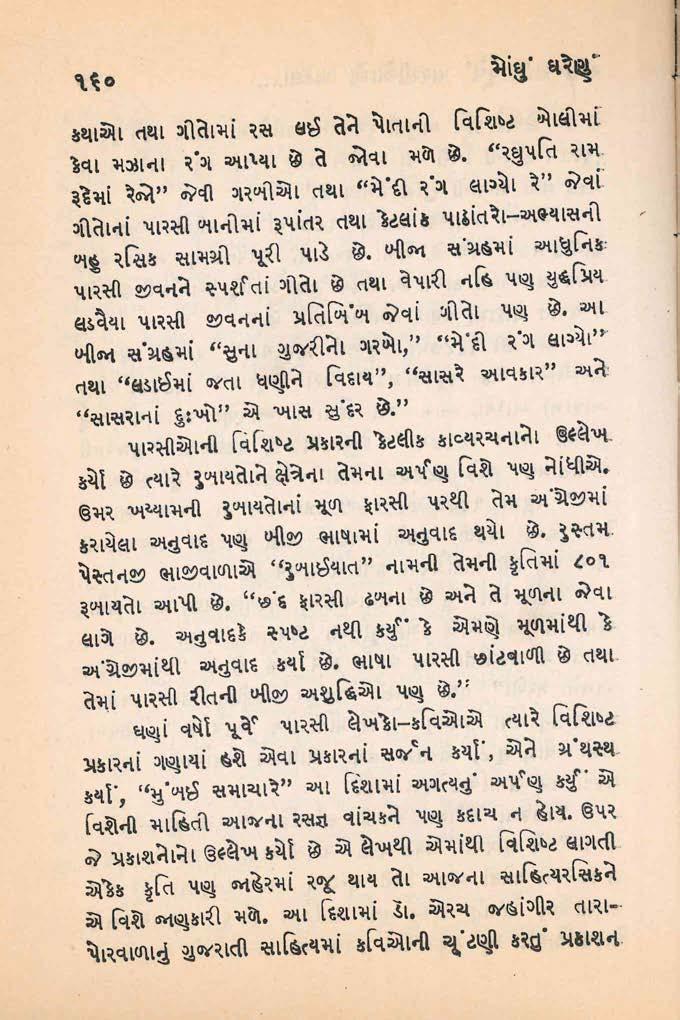 ૧૬૦
મોંઘું ઘરેણું
કથાઓ તથા ગીતોમાં રસ લઈ તેને પોતાની વિશિષ્ટ બોલીમાં
કેવા મઝાના રંગ આપ્યા છે તે જોવા મળે છે. “રઘુપતિ રામ
રૂદેમાં રેજો” જેવી ગરબીઓ તથા “મેંદી રંગ લાગ્યો રે” જેવાં
ગીતોનાં પારસી બાનીમાં રૂપાંતર તથા કેટલાંક પાઠાંતરો—અભ્યાસની
બહુ રસિક સામગ્રી પૂરી પાડે છે. બીજા સંગ્રહમાં આધુનિક
પારસી જીવનને સ્પર્શતાં ગીતો છે તથા વેપારી નહિ પણ યુદ્ધપ્રિય
લડવૈયા પારસી જીવનનાં પ્રતિબિંબ જેવાં ગીતો પણ છે. આ
બીજા સંગ્રહમાં “સુના ગુજરીનો ગરબો,” “મેંદી રંગ લાગ્યો”
તથા “લડાઈમાં જતા ધણીને વિદાય”, “સાસરે આવકાર” અને
“સાસરાનાં દુઃખો” એ ખાસ સુંદર છે.”
પારસીઓની વિશિષ્ટ પ્રકારની કેટલીક કાવ્યરચનાનો ઉલ્લેખ
કર્યો છે ત્યારે રુબાયતોને ક્ષેત્રેના તેમના અર્પણ વિશે પણ નોંધીએ.
ઉમર ખય્યામની રુબાયતોનાં મૂળ ફારસી પરથી તેમ અંગ્રેજીમાં
કરાયેલા અનુવાદ પણ બીજી ભાષામાં અનુવાદ થયો છે. રુસ્તમ
પેસ્તનજી ભાજીવાળાએ “રુબાઈયાત” નામની તેમની કૃતિમાં ૮૦૧
રૂબાયતો આપી છે. “છંદ ફારસી ઢબના છે અને તે મૂળના જેવા
લાગે છે. અનુવાદકે સ્પષ્ટ નથી કર્યું કે એમણે મૂળમાંથી કે
અંગ્રેજીમાંથી અનુવાદ કર્યા છે. ભાષા પારસી છાંટવાળી છે તથા
તેમાં પારસી રીતની બીજી અશુદ્ધિઓ પણ છે.”
ઘણાં વર્ષો પૂર્વે પારસી લેખકો—કવિઓએ ત્યારે વિશિષ્ટ
પ્રકારનાં ગણાયાં હશે એવા પ્રકારનાં સર્જન કર્યાં, એને ગ્રંથસ્થ
કર્યાં, “મુંબઈ સમાચારે” આ દિશામાં અગત્યનું અર્પણ કર્યું એ
વિશેની માહિતી આજના રસજ્ઞ વાંચકને પણ કદાચ ન હોય. ઉપર
જે પ્રકાશનોનો ઉલ્લેખ કર્યો છે એ લેખથી એમાંથી વિશિષ્ટ લાગતી
એકેક કૃતિ પણ જાહેરમાં રજૂ થાય તો આજના સાહિત્યરસિકને
એ વિશે જાણકારી મળે. આ દિશામાં ડૉ. એરચ જહાંગીર તારા-
પોરવાળાનું ગુજરાતી સાહિત્યમાં કવિઓની ચૂંટણી કરતું પ્રકાશન